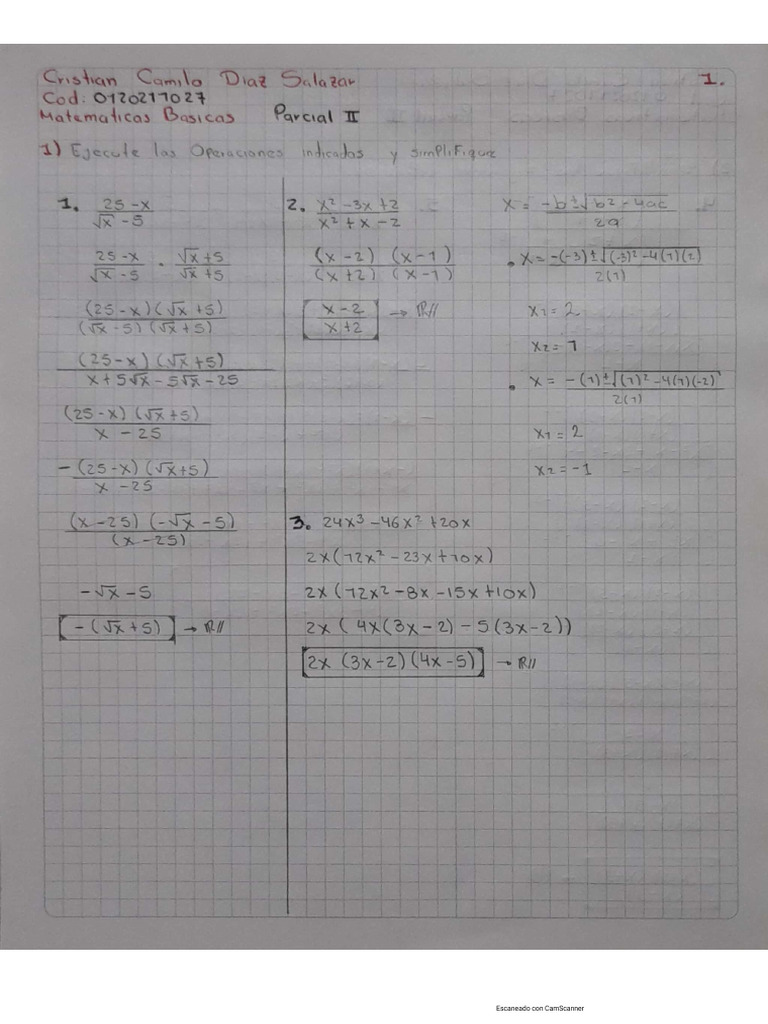 Cristian Camilo Diaz Salazar 1.
Cod: 0120211027
Matematicas Basicas Parcial II
1) Ejecute las Operaciones indicadas y simplifique
1. (25 - x)/(√x - 5)
(25 - x)/(√x - 5) · (√x + 5)/(√x + 5)
((25 - x)(√x + 5))/((√x - 5)(√x + 5))
((25 - x)(√x + 5))/(x + 5√x - 5√x - 25)
((25 - x)(√x + 5))/(x - 25)
- ((25 - x)(√x + 5))/(x - 25)
((x - 25)(-√x - 5))/((x - 25))
-√x - 5
-(√x + 5) → R//
2. (x² - 3x + 2)/(x² + x - 2)
((x - 2)(x - 1))/((x + 2)(x - 1))
(x - 2)/(x + 2) → R//
x = (-b ± √(b² - 4ac))/(2a)
• x = (-(-3) ± √((-3)² - 4(1)(2)))/(2(1))
x₁ = 2
x₂ = 1
• x = (-(1) ± √((1)² - 4(1)(-2)))/(2(1))
x₁ = 2
x₂ = -1
3. 24x³ - 46x² + 20x
2x(12x² - 23x + 10x)
2x(12x² - 8x - 15x + 10x)
2x (4x(3x - 2) - 5(3x - 2))
2x (3x - 2)(4x - 5) → R//
Escaneado con CamScanner